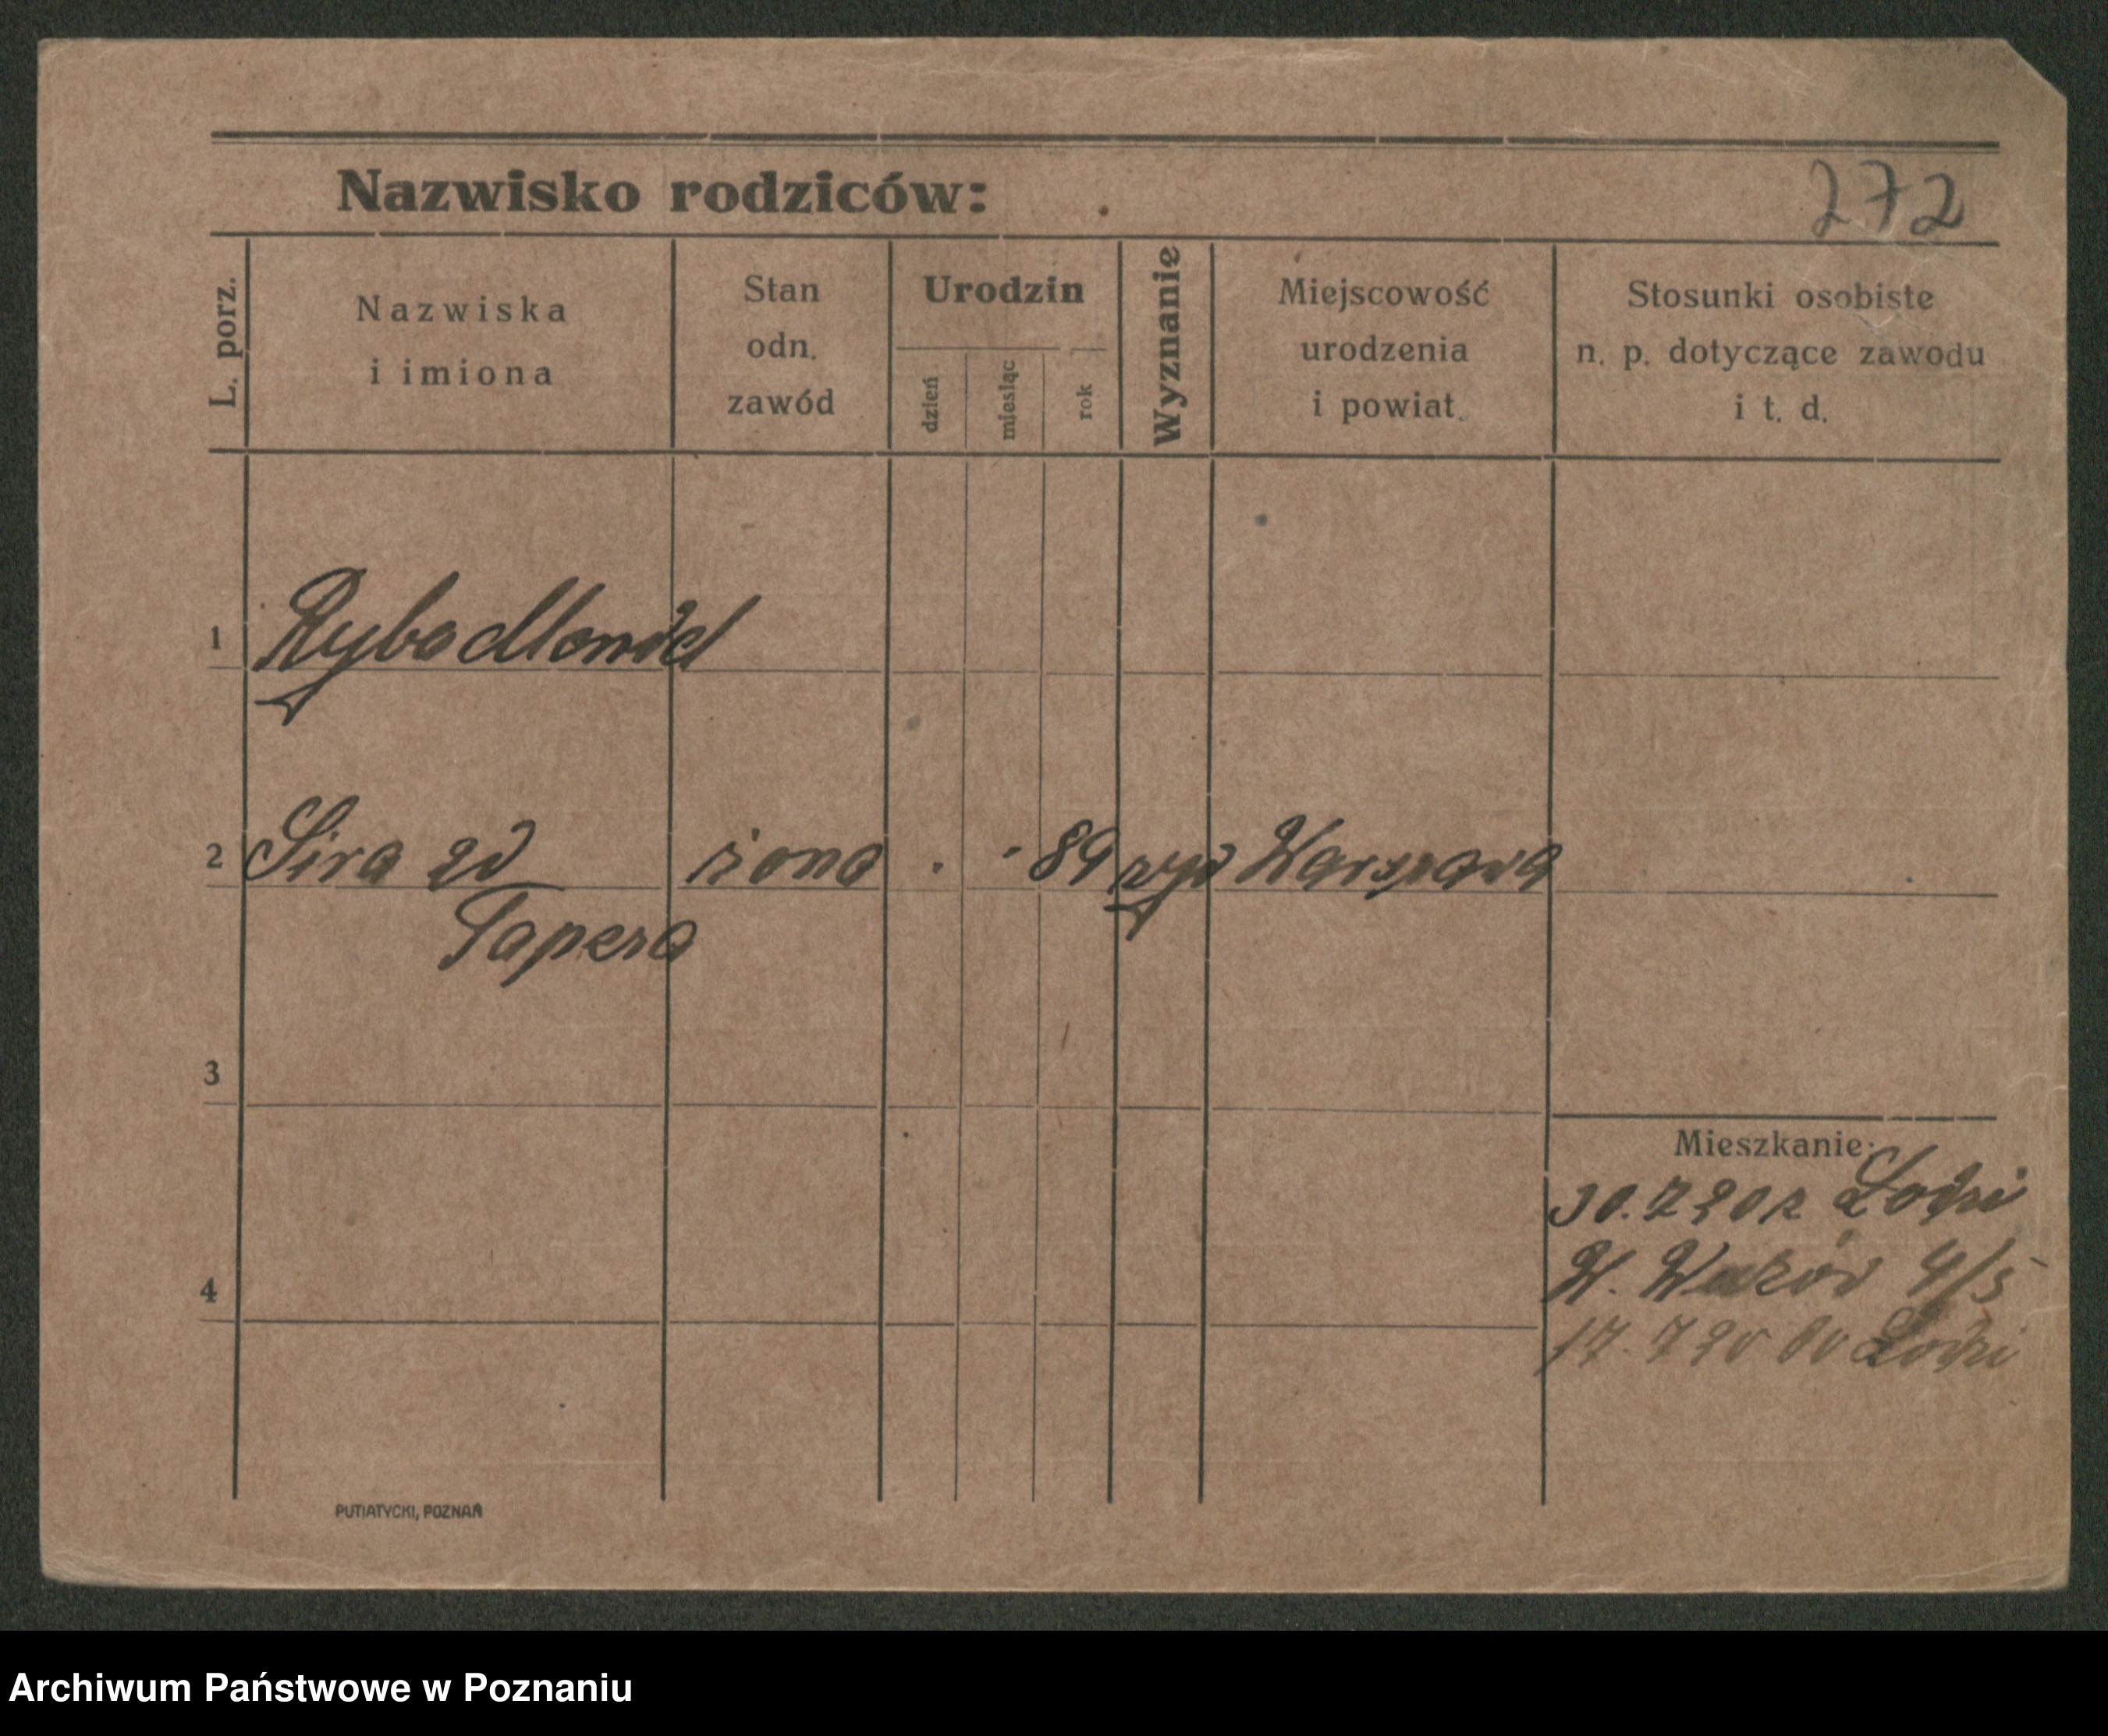 Nazwisko rodziców:
272
L. porz.
Nazwiska
i imiona
Stan
odn.
zawód
Urodzin
dzień
miesiąc
rok
Wyznanie
Miejscowość
urodzenia
i powiat.
Stosunki osobiste
n. p. dotyczące zawodu
i t. d.
1 Ryba Mendel
2 Sira zd żona . - 89 żyd Warszawa
Papera
3
Mieszkanie:
30.7 20 z Łodzi
W. 4/5
4
17.7 20 do Łodzi
PUTIATYCKI, POZNAŃ
Archiwum Państwowe w Poznaniu